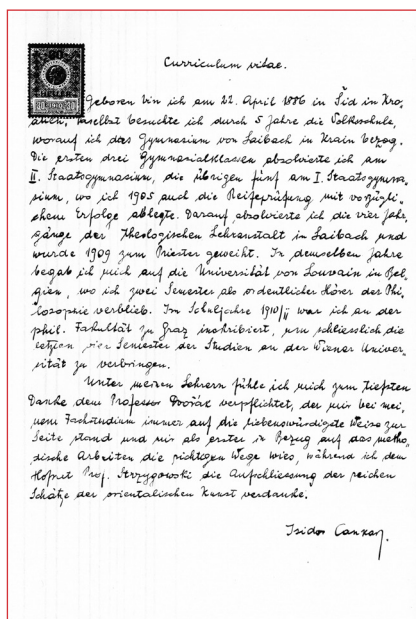 Curriculum vitae.
Geboren bin ich am 22. April 1886 in Šid in Kro-
atien, daselbst besuchte ich durch 5 Jahre die Volksschule,
worauf ich das Gymnasium von Laibach in Krain bezog.
Die ersten drei Gymnasialklassen absolvierte ich am
II. Staatsgymnasium, die übrigen fünf am I. Staatsgymna-
sium, wo ich 1905 auch die Reifeprüfung mit vorzügli-
chem Erfolge ablegte. Darauf absolvierte ich die vier Jahr-
gänge der theologischen Lehranstalt in Laibach und
wurde 1909 zum Priester geweiht. In demselben Jahre
begab ich mich auf die Universität von Louvain in Bel-
gien, wo ich zwei Semester als ordentlicher Hörer der Phi-
losophie verblieb. Im Schuljahre 1910/11 war ich an der
phil. Fakultät zu Graz inskribiert, um schliesslich die
letzten vier Semester der Studien an der Wiener Univer-
sität zu verbringen.
Unter meinen Lehrern fühle ich mich zum tiefsten
Danke dem Professor Dvořák verpflichtet, der mir bei mei-
nem Fachstudium immer auf die liebenswürdigste Weise zur
Seite stand und mir als erster in Bezug auf das metho-
dische Arbeiten die richtigen Wege wies, während ich dem
Hofrat Prof. Strzygowski die Aufschliessung der reichen
Schätze der orientalischen Kunst verdanke.
Isidor Cankar.